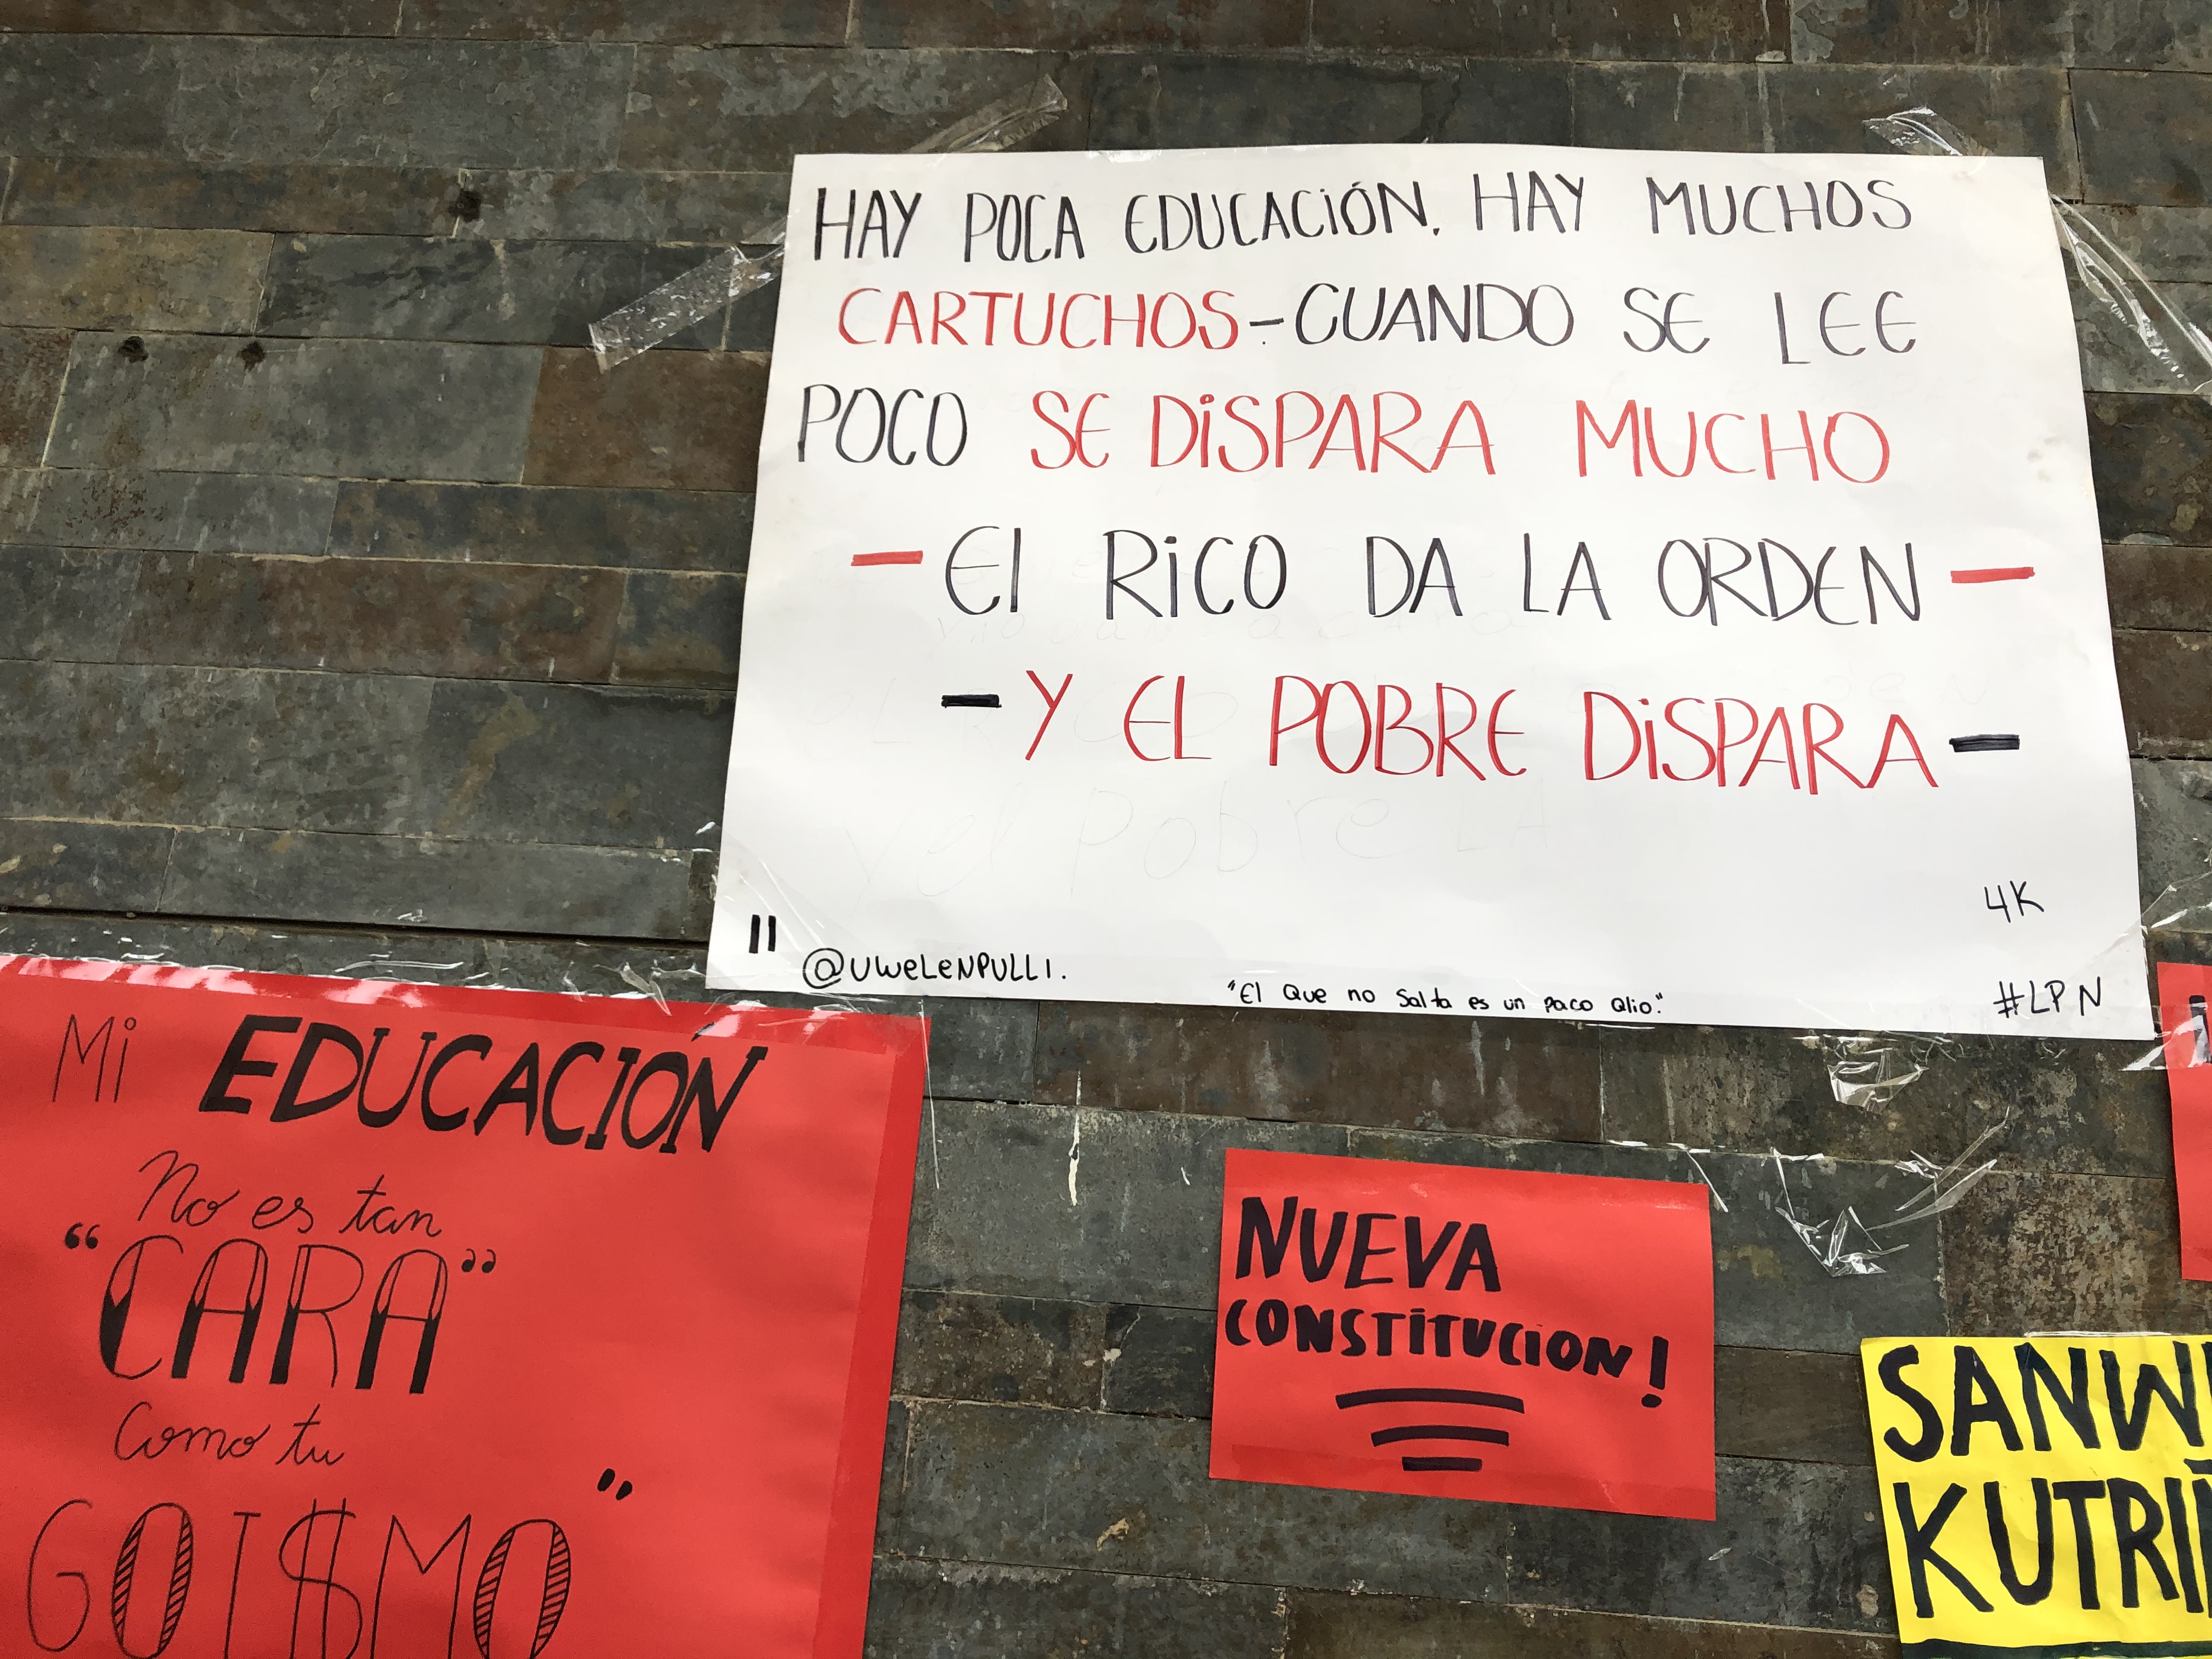 HAY POCA EDUCACIÓN, HAY MUCHOS
CARTUCHOS-CUANDO SE LEE
POCO SE DISPARA MUCHO
- El RICO DA LA ORDEN -
- Y EL POBRE DISPARA -
4K
@UWELENPULLI.
"El Que no Salta es un paco Qlio."
#LPN
Mi EDUCACIÓN
No es tan
"CARA"
Como tu
GOI$MO"
NUEVA
CONSTITUCION!
SANW
KUTRI